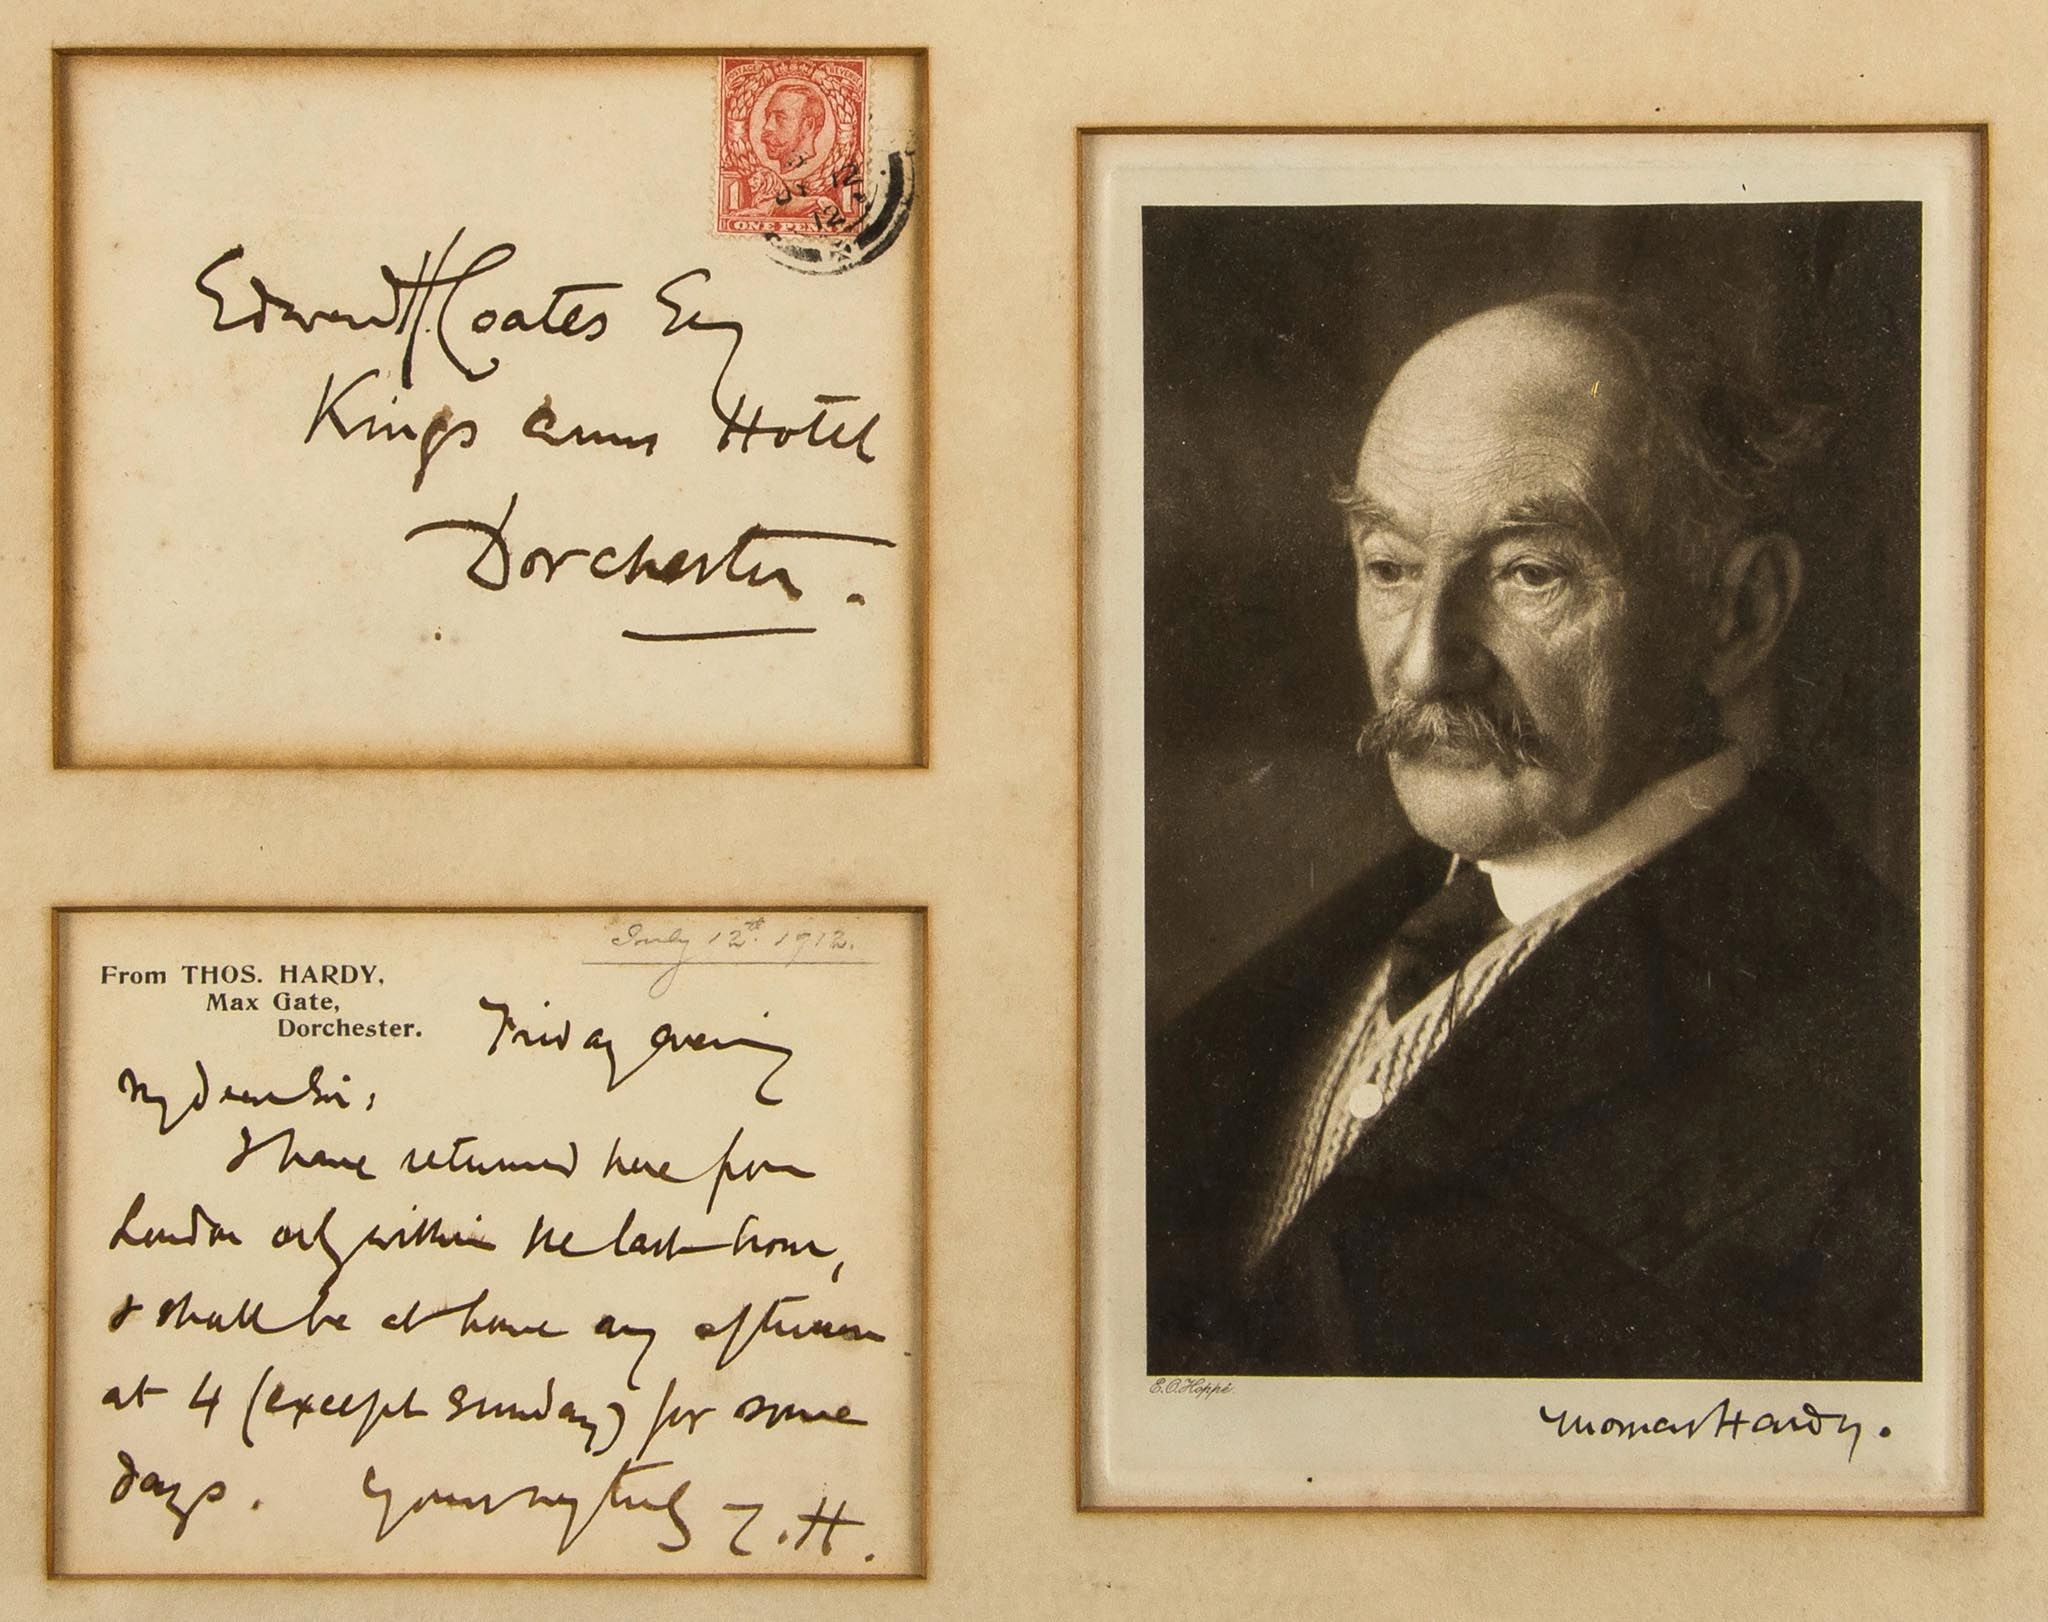 POSTAGE REVENUE
1 1
ONE PENNY
JY 12
12
Edward H. Coates Esq
Kings Arms Hotel
Dorchester.
July 12th. 1912.
From THOS. HARDY,
Max Gate,
Dorchester.
Friday evening
My dear Sir,
I have returned here from
London only within the last hour,
& shall be at home any afternoon
at 4 (except Sunday) for some
days. Yours very truly
T. H.
E. O. Hoppé
Thomas Hardy.